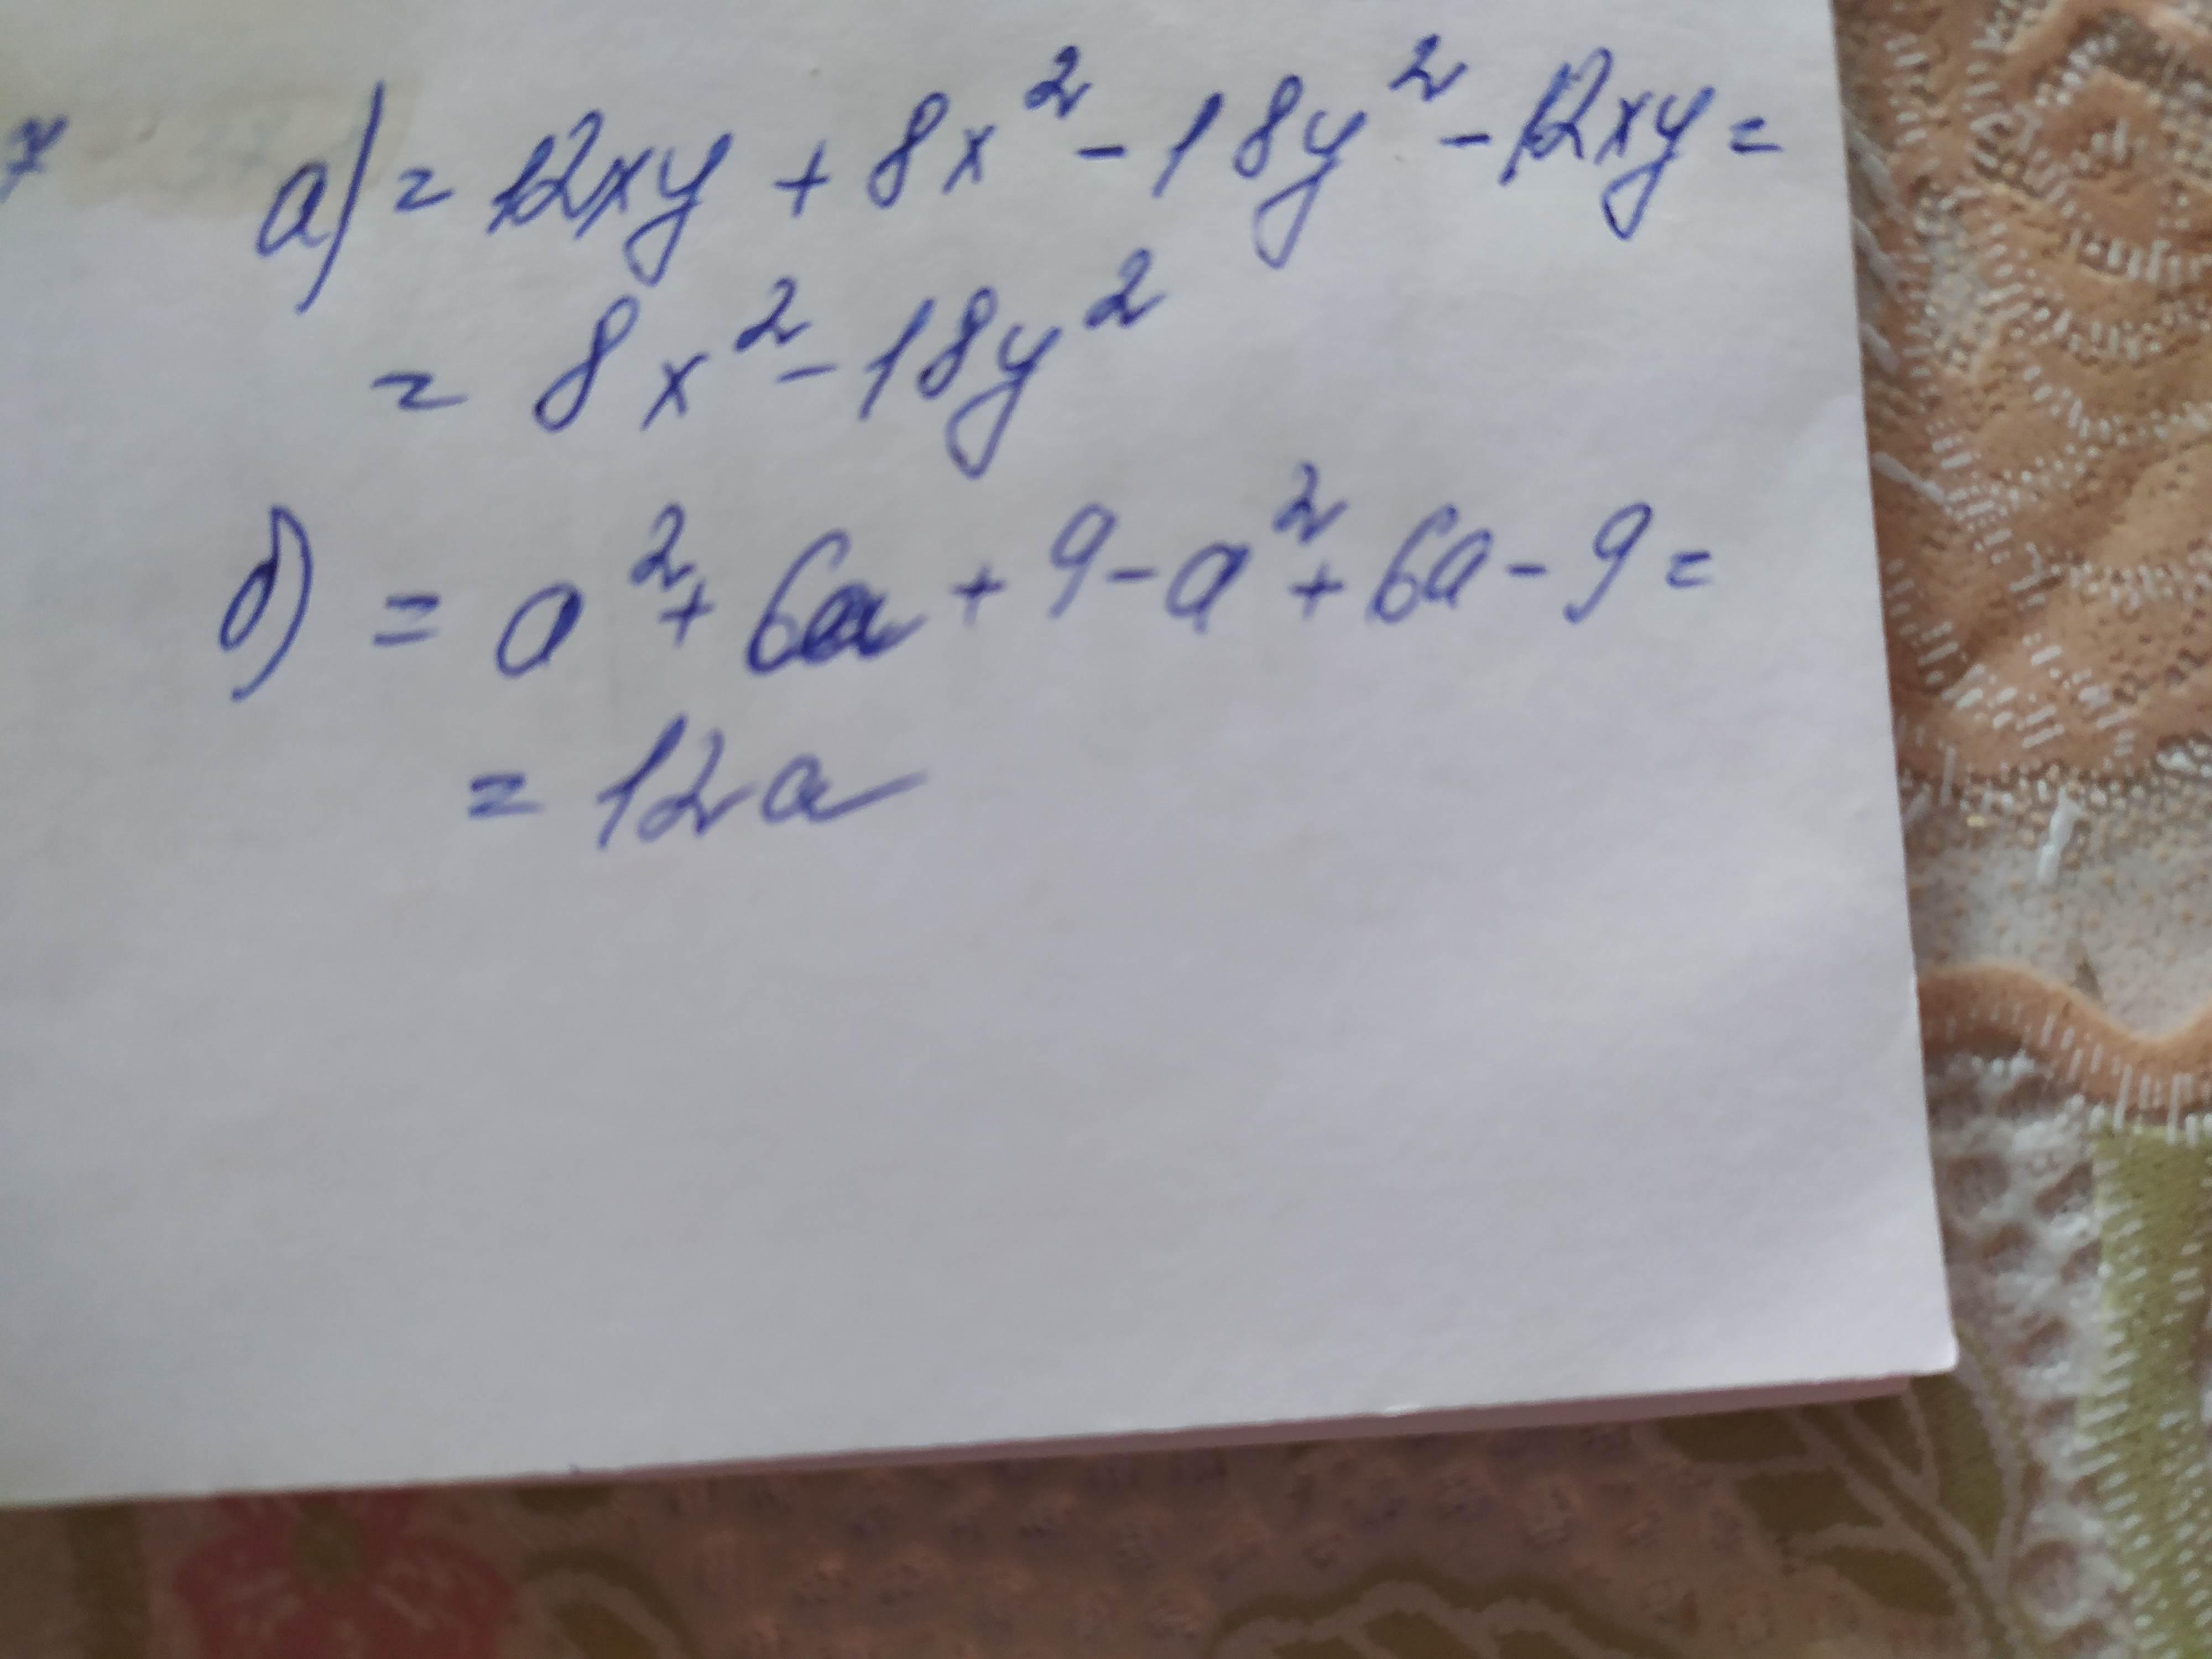 7 а) = 12xy + 8x² - 18y² - 12xy =
= 8x² - 18y²
б) = a² + 6a + 9 - a² + 6a - 9 =
= 12a